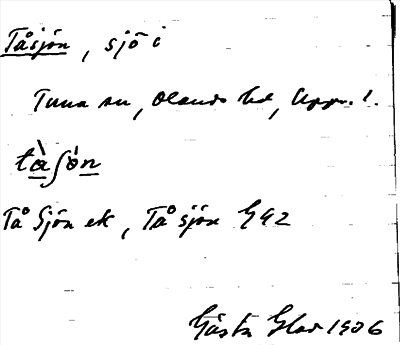 Tåsjön, sjö i
Tuna sn, Olands hd, Uppl.
tàʃön
Tå Sjön ek, Tåsjön GK2
Gösta 1906